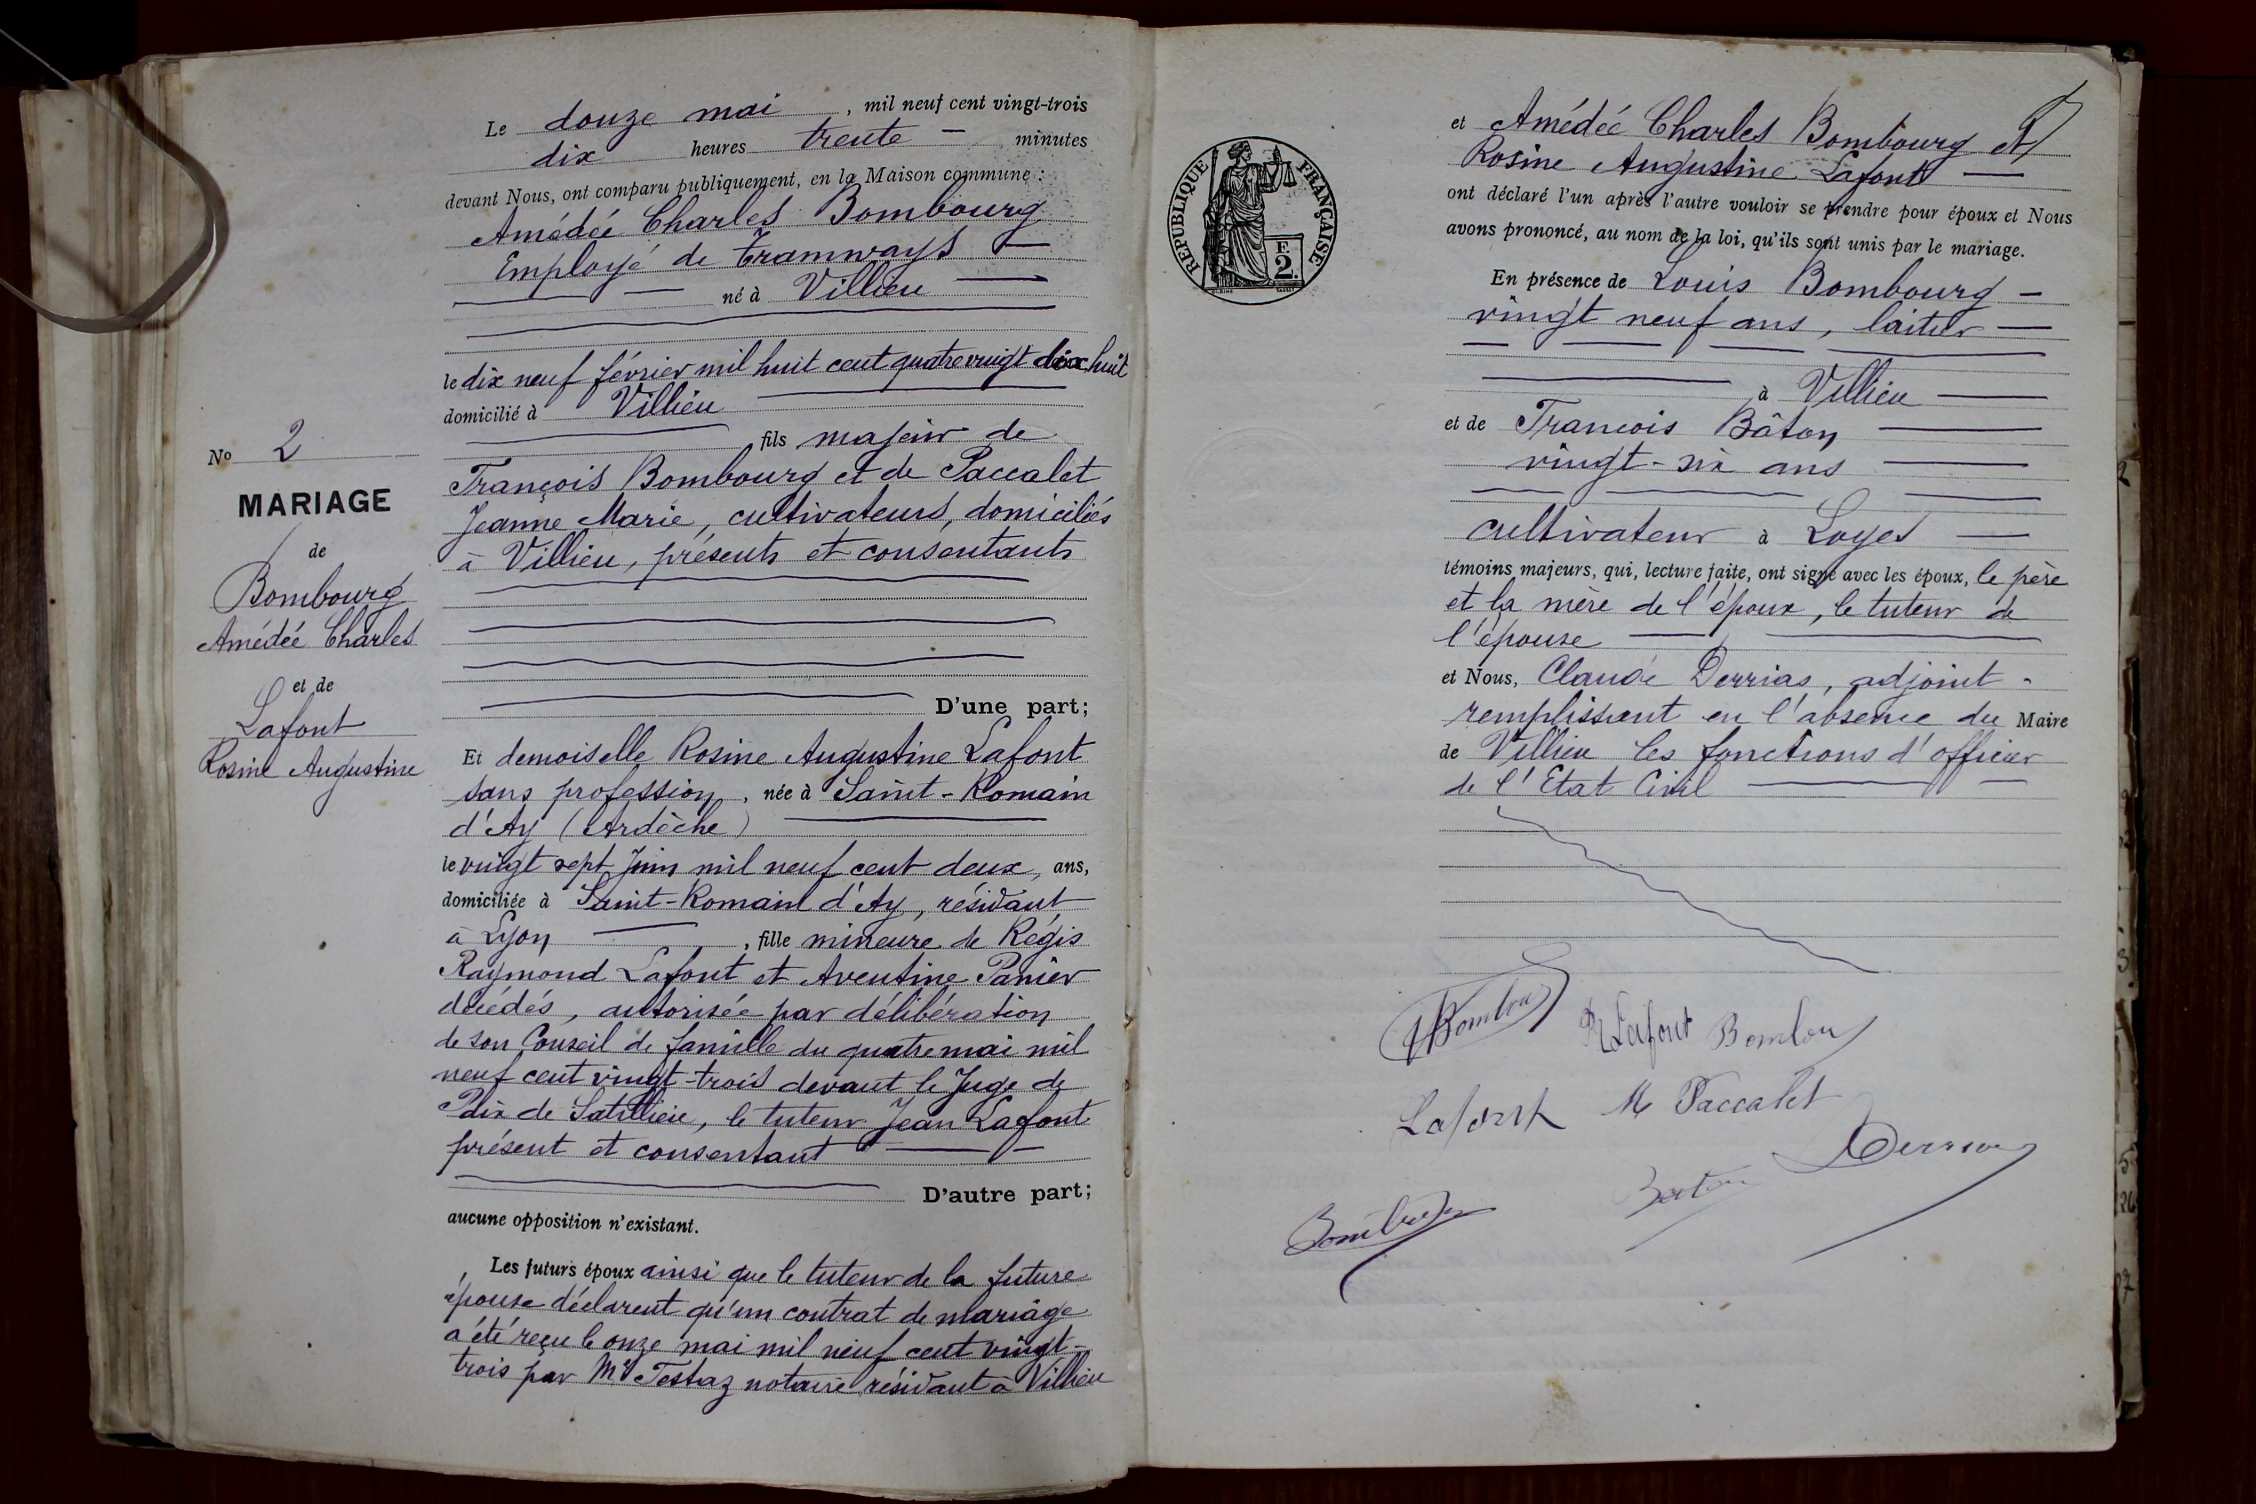 Le douze mai, mil neuf cent vingt-trois
dix heures trente — minutes
devant Nous, ont comparu publiquement, en la Maison commune :
Amédée Charles Bombourg
Employé de tramways —
né à Villieu
le dix neuf février mil huit cent quatre vingt dix huit
domicilié à Villieu
, fils majeur de
François Bombourg et de Paccalet
Jeanne Marie, cultivateurs, domiciliés
à Villieu, présents et consentants
D'une part;
No 2
MARIAGE
de
Bombourg
Amédée Charles
et de
Lafont
Rosine Augustine
Et demoiselle Rosine Augustine Lafont
sans profession, née à Saint-Romain
d'Ay (Ardèche)
le vingt sept Juin mil neuf cent deux, ans,
domiciliée à Saint-Romain d'Ay, résidant
à Lyon, fille mineure de Régis
Raymond Lafont et Aventine Panier
décédés, autorisée par délibération
de son Conseil de famille du quatre mai mil
neuf cent vingt-trois devant le Juge de
Paix de Satillieu, le tuteur Jean Lafont
présent et consentant
D'autre part;
aucune opposition n'existant.
Les futurs époux ainsi que le tuteur de la future
épouse déclarent qu'un contrat de mariage
a été reçu le onze mai mil neuf cent vingt-
trois par Me Testaz notaire résidant à Villieu
RÉPUBLIQUE FRANÇAISE
F.
2.
et Amédée Charles Bombourg et
Rosine Augustine Lafont —
ont déclaré l'un après l'autre vouloir se prendre pour époux et Nous
avons prononcé, au nom de la loi, qu'ils sont unis par le mariage.
En présence de Louis Bombourg —
vingt neuf ans, laitier —
à Villieu
et de Francois Bâton
vingt-six ans
cultivateur à Loyes
témoins majeurs, qui, lecture faite, ont signé avec les époux, le père
et la mère de l'époux, le tuteur de
l'épouse
et Nous, Claude Derrias, adjoint -
remplissant en l'absence du Maire
de Villieu les fonctions d'officier
de l'Etat Civil
R Lafont
Lafont M Paccalet